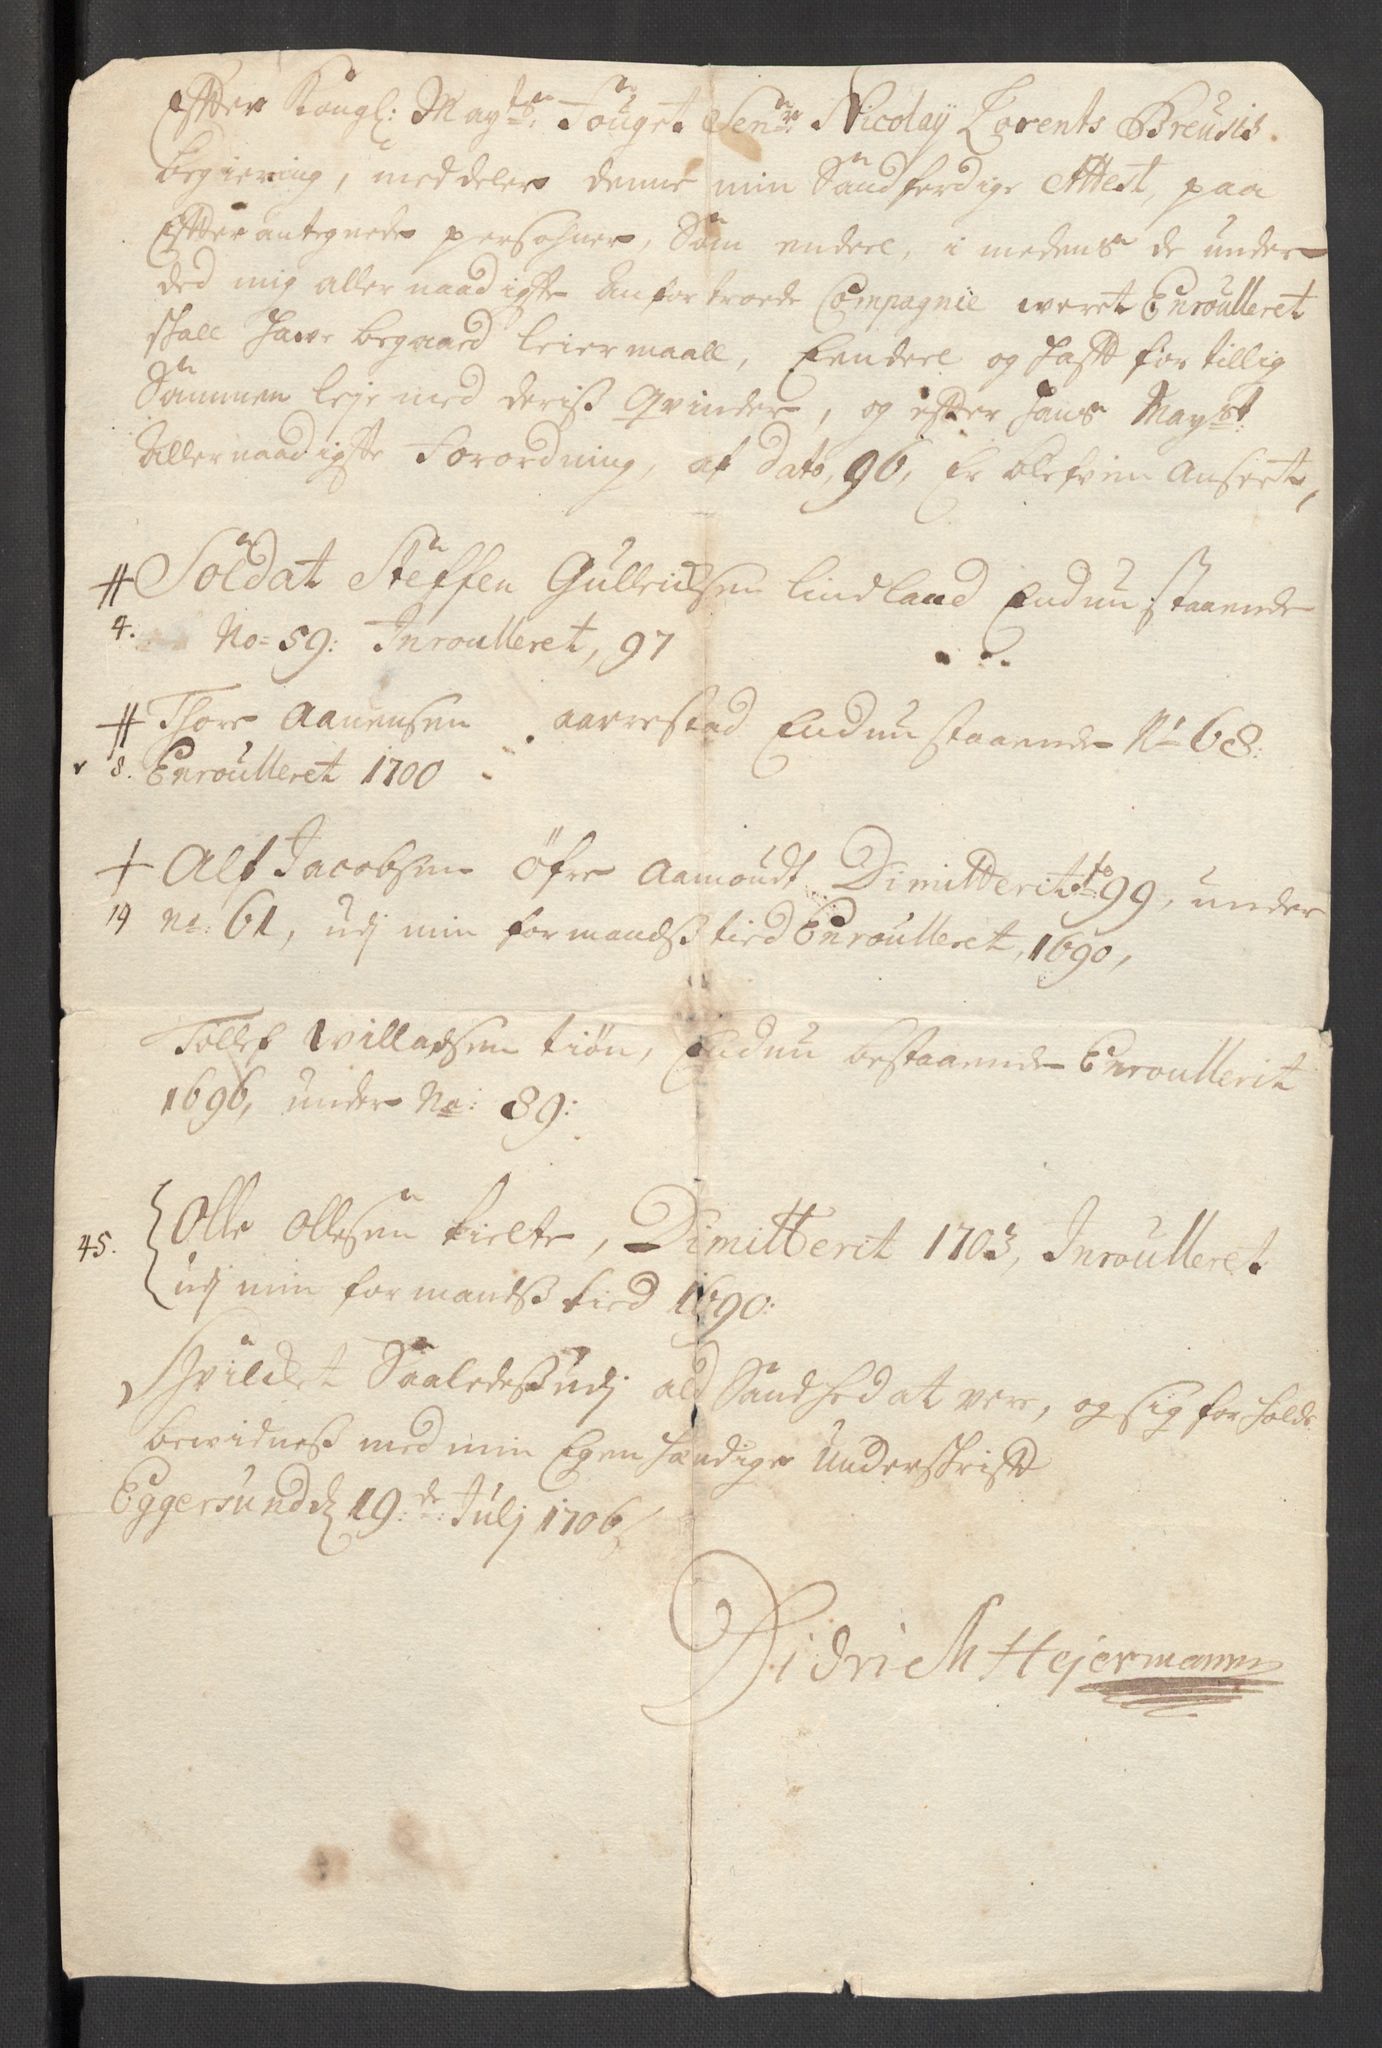 Effter Kongl: May:ts Fougt Sen:r Nicolay Lorents Breusis
begiering, meddeles denne min Sandferdige Attest, paa
Effter antegnede persohner, Som endeel, i medens de under
ded mig allernaadigste Anfortroede Compagnie weret Enroulleret
skall hawe begaaed leiermaall, Eendeel og hafft for tillig
Sammen leje med deriss Qvinder, og effter hans May:st
Allernaadigste Forordning, af Dato, 96, Er blefven anseet,
# Soldat Steffen Gulleichsen Lindland Endnu staaende
4. No= 59: Inroulleret, 97
# Thore Aanensen aarrestad Endnu staaende No 68:
8. Enroulleret 1700
+ Alf Jacobsen Öfre Aamoudt Dimitterit Ao 99, under
19 No: 61, udj min formandss tied Enroulleret, 1690,
Tollef Willadsen tiøn, Endnu bestaaende Enroullerit
1696, under No: 89:
45. Olle Ollesen kielte, Dimitterit 1703, Inroulleret
udj min formandss tied 1690:
Hvilcket Saaledess udj ald Sandhed at vere, og sig forholde
bewidness med min Egenhændige Underskrifft
Eggersund d 19:de: Julj 1706
Didrich Hejermann